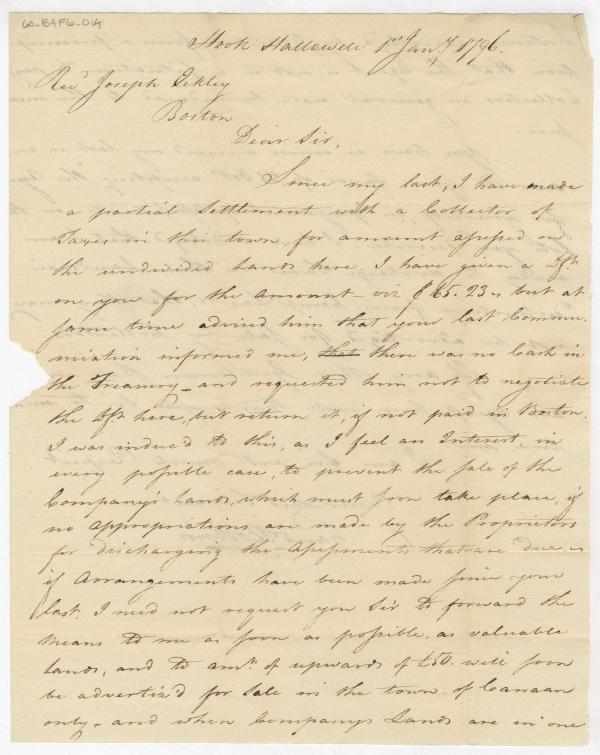 60-B4F6-014
Hook Hallowell 1st Jany 1796.
Revd Joseph Eckley
Boston
Dear Sir,
Since my last, I have made
a partial Settlement with a Collector of
Taxes in this town, for amount assessed on
the undivided Lands here. I have given a Dft
on you for the Amount - viz 65.23 - but at
same time advised him that your last Commu-
niation informed me, that there was no Cash in
the Treasury - and requested him not to negotiate
the Dft here, but return it, if not paid in Boston.
I was induc'd to this, as I feel an Interest, in
every possible case, to prevent the sale of the
Company's Lands, which must soon take place, if
no appropriations are made by the Proprietors
for discharging the assessments that are due -
if Arrangements have been made since your
last, I need not request you Sir to forward the
means to me as soon as possible, as valuable
Lands, and to amt. of upwards of £50. will soon
be advertiz'd for Sale in the town of Canaan
only - and when Companys Lands are in one